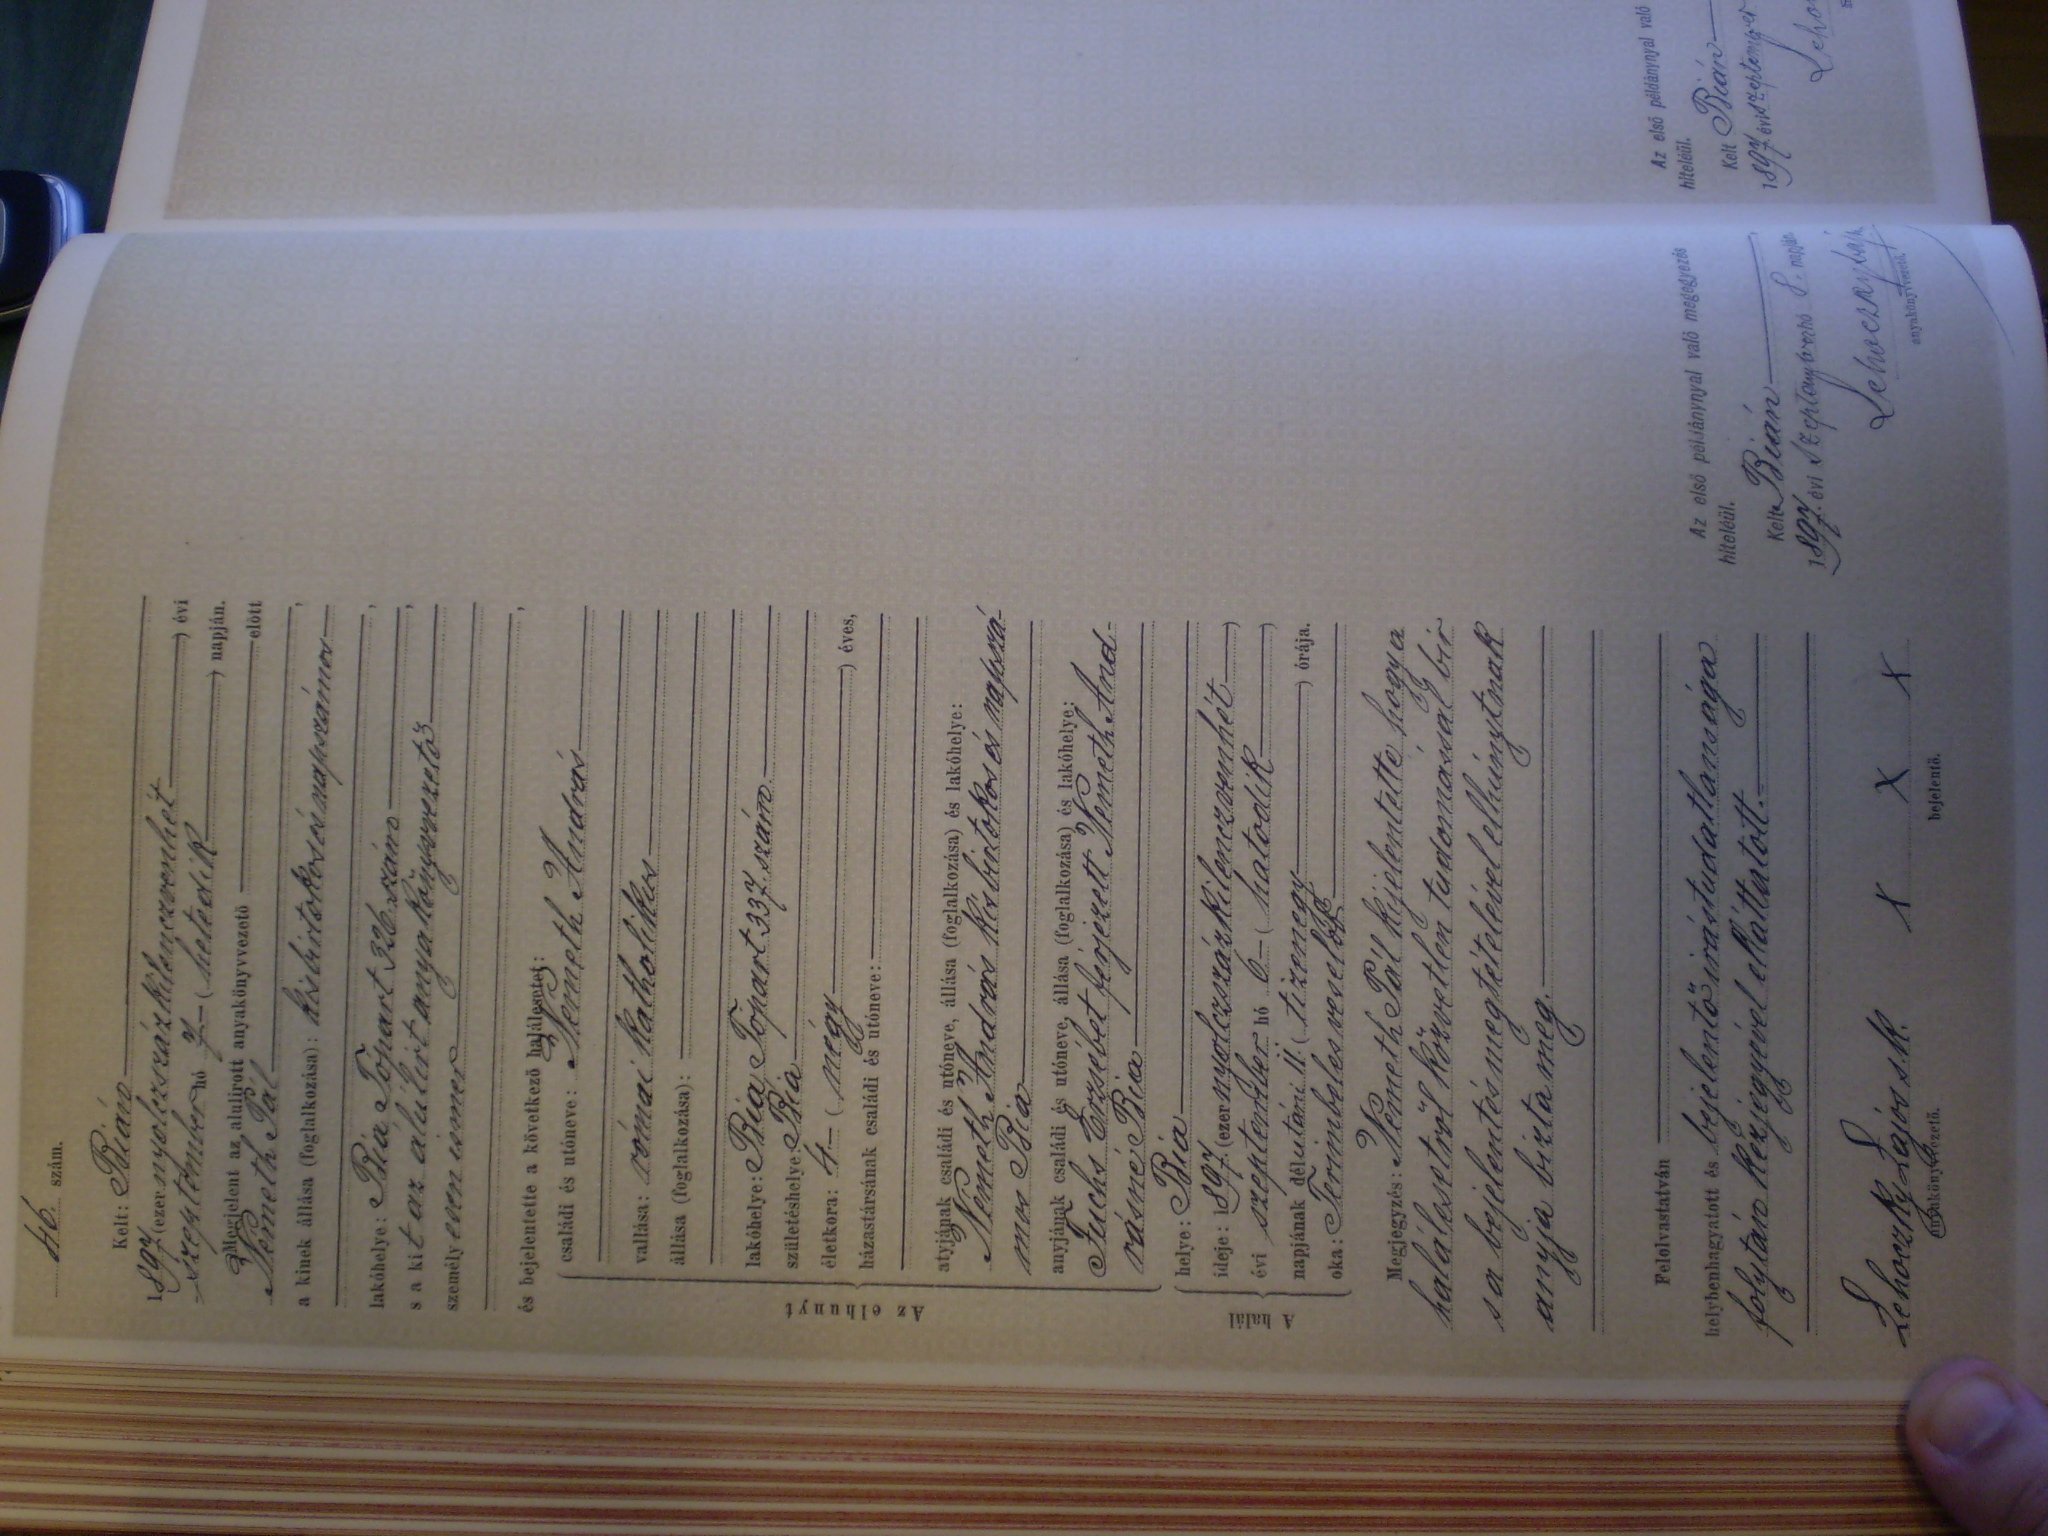 46. szám.
Kelt: Bián
1897 (ezernyolczszázkilenczvenhét) évi
szeptember hó 7 – (hetedik) napján.
Megjelent az alulirott anyakönyvvezető előtt
Németh Pál
a kinek állása (foglalkozása): kisbirtokos és napszámos
lakóhelye: Bia Tópart 326 szám,
s a kit az alulirt anyakönyvvezető
személyesen ismer
és bejelentette a következő halálesetet:
Az elhunyt
családi és utóneve: Németh András
vallása: római katholikus
állása (foglalkozása):
lakóhelye: Bia, Tópart 337. szám.
születéshelye: Bia
életkora: 4 – (négy) éves,
házastársának családi és utóneve:
atyjának családi és utóneve, állása (foglalkozása) és lakóhelye:
Németh András kisbirtokos és napszá-
mos Bia
anyjának családi és utóneve, állása (foglalkozása) és lakóhelye:
Fuchs Erzsébet férjezett Németh And-
rásné Bia
A halál
helye: Bia
ideje: 1897. (ezernyolczszázkilenczvenhét)
évi szeptember hó 6 – (hatodik)
napjának délutáni 11 (tizenegy) órája.
oka:
Megjegyzés: Németh Pál kijelentette hogy a
halálesetről közvetlen tudomással bir
s a bejelentés megtételével elhúnytnak
anyja bizta meg.
Felolvastatván
helybenhagyatott és bejelentő irástudatlansága
folytán kézjegyével elláttatott.
Lehoczky Lajos s.k. x x x
anyakönyvvezető. bejelentő.
Az első példánynyal való megegyezés
hiteléül.
Kelt Bián
1897. évi szeptember hó 8. napján
Lehoczky Lajos
anyakönyvvezető.
Az első példánynyal való
hiteléül.
Kelt Bián
1897 évi szeptember